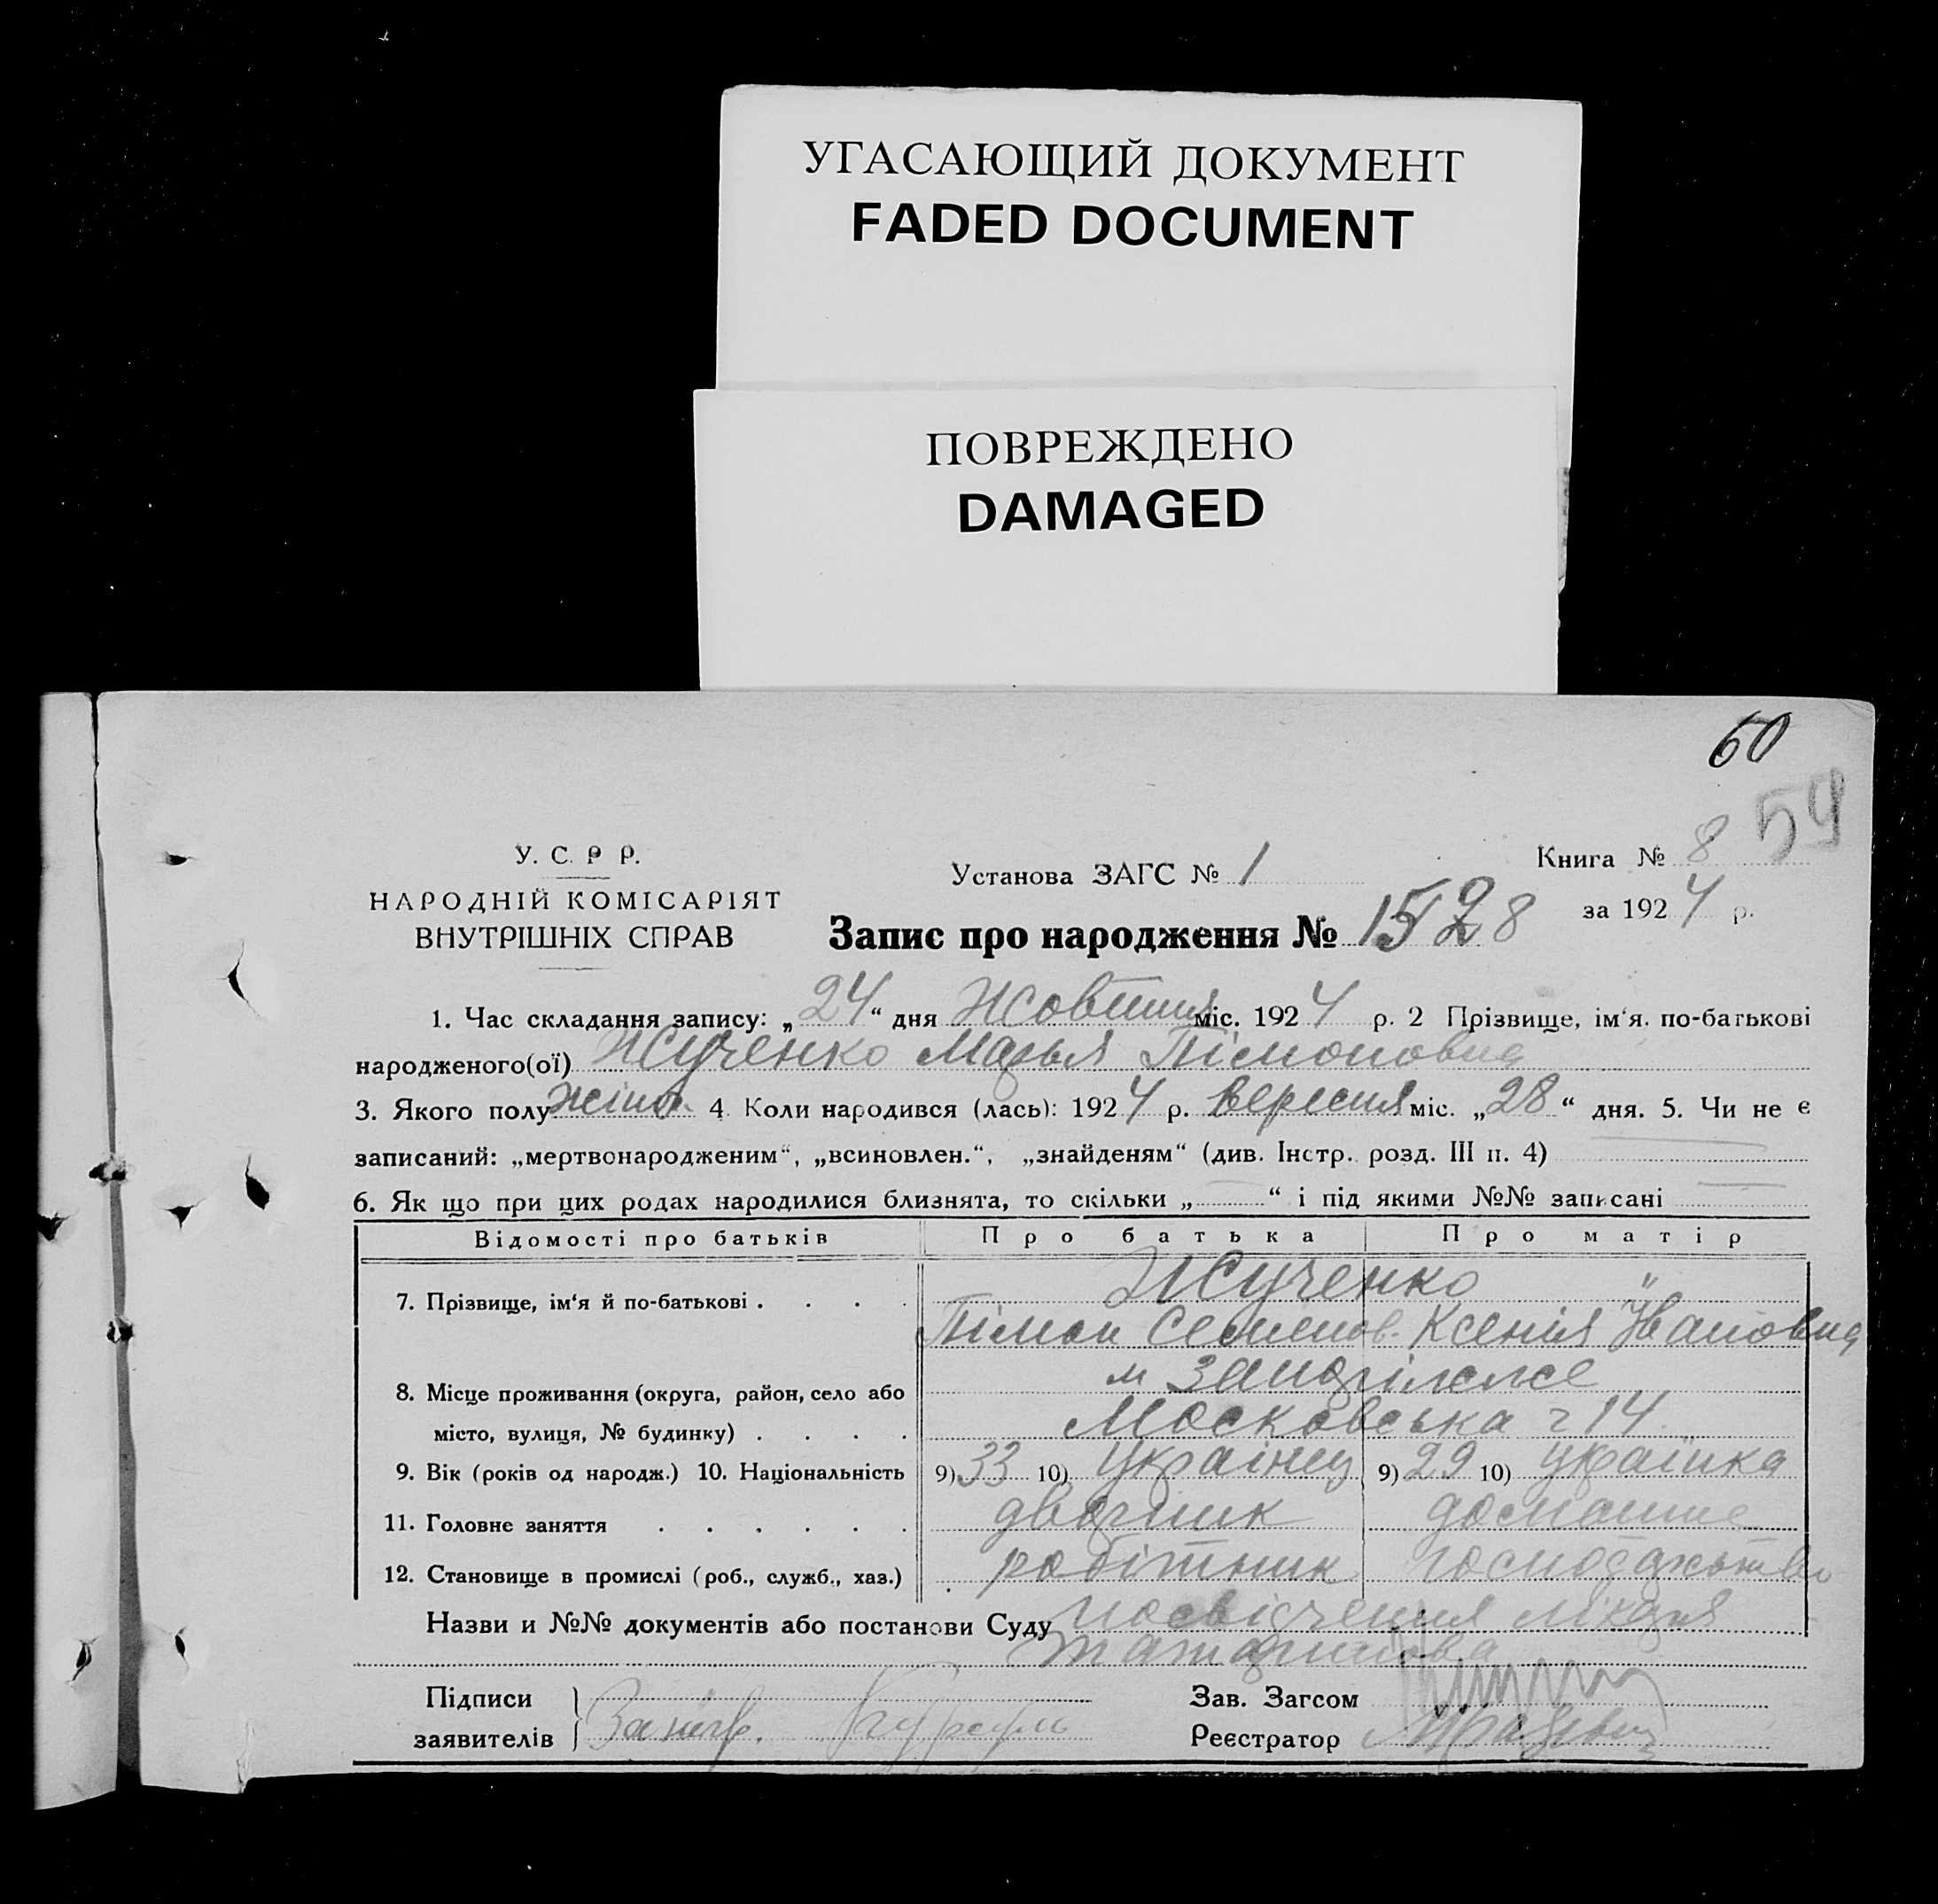 УГАСАЮЩИЙ ДОКУМЕНТ
FADED DOCUMENT
ПОВРЕЖДЕНО
DAMAGED
60
59
У. С. Р Р.
НАРОДНІЙ КОМІСАРІЯТ
ВНУТРІШНІХ СПРАВ
Установа ЗАГС № 1
Книга № 8
за 1924 р.
Запис про народження № 1528
1. Час складання запису: „24“ дня Жовтня міс. 1924 р. 2 Прізвище, ім'я. по-батькові
народженого(ої) Жученко Марья Пімоновна
3. Якого полу жіноч. 4 Коли народився (лась): 1924 р. вересня міс. „28“ дня. 5. Чи не є
записаний: „мертвонародженим“, „всиновлен.“, „знайденям“ (див. Інстр. розд. III п. 4)
6. Як що при цих родах народилися близнята, то скільки „ “ і під якими №№ записані
Відомості про батьків Про батька Про матір
7. Прізвище, ім'я й по-батькові . . . . Жученко "
Пімон Семенов. Ксенія Івановна
8. Місце проживання (округа, район, село або м Запоріжже
місто, вулиця, № будинку) . . . . Московська ч 14
9. Вік (років од народж.) 10. Національність 9) 33 10) Українец 9) 29 10) українка
11. Головне заняття . . . . . . дворник домашнє
12. Становище в промислі (роб., служб., хаз.) робітник господарство
Назви и №№ документів або постанови Суду посвідчення лікаря
Підписи
заявителів
Зав. Загсом
Реєстратор